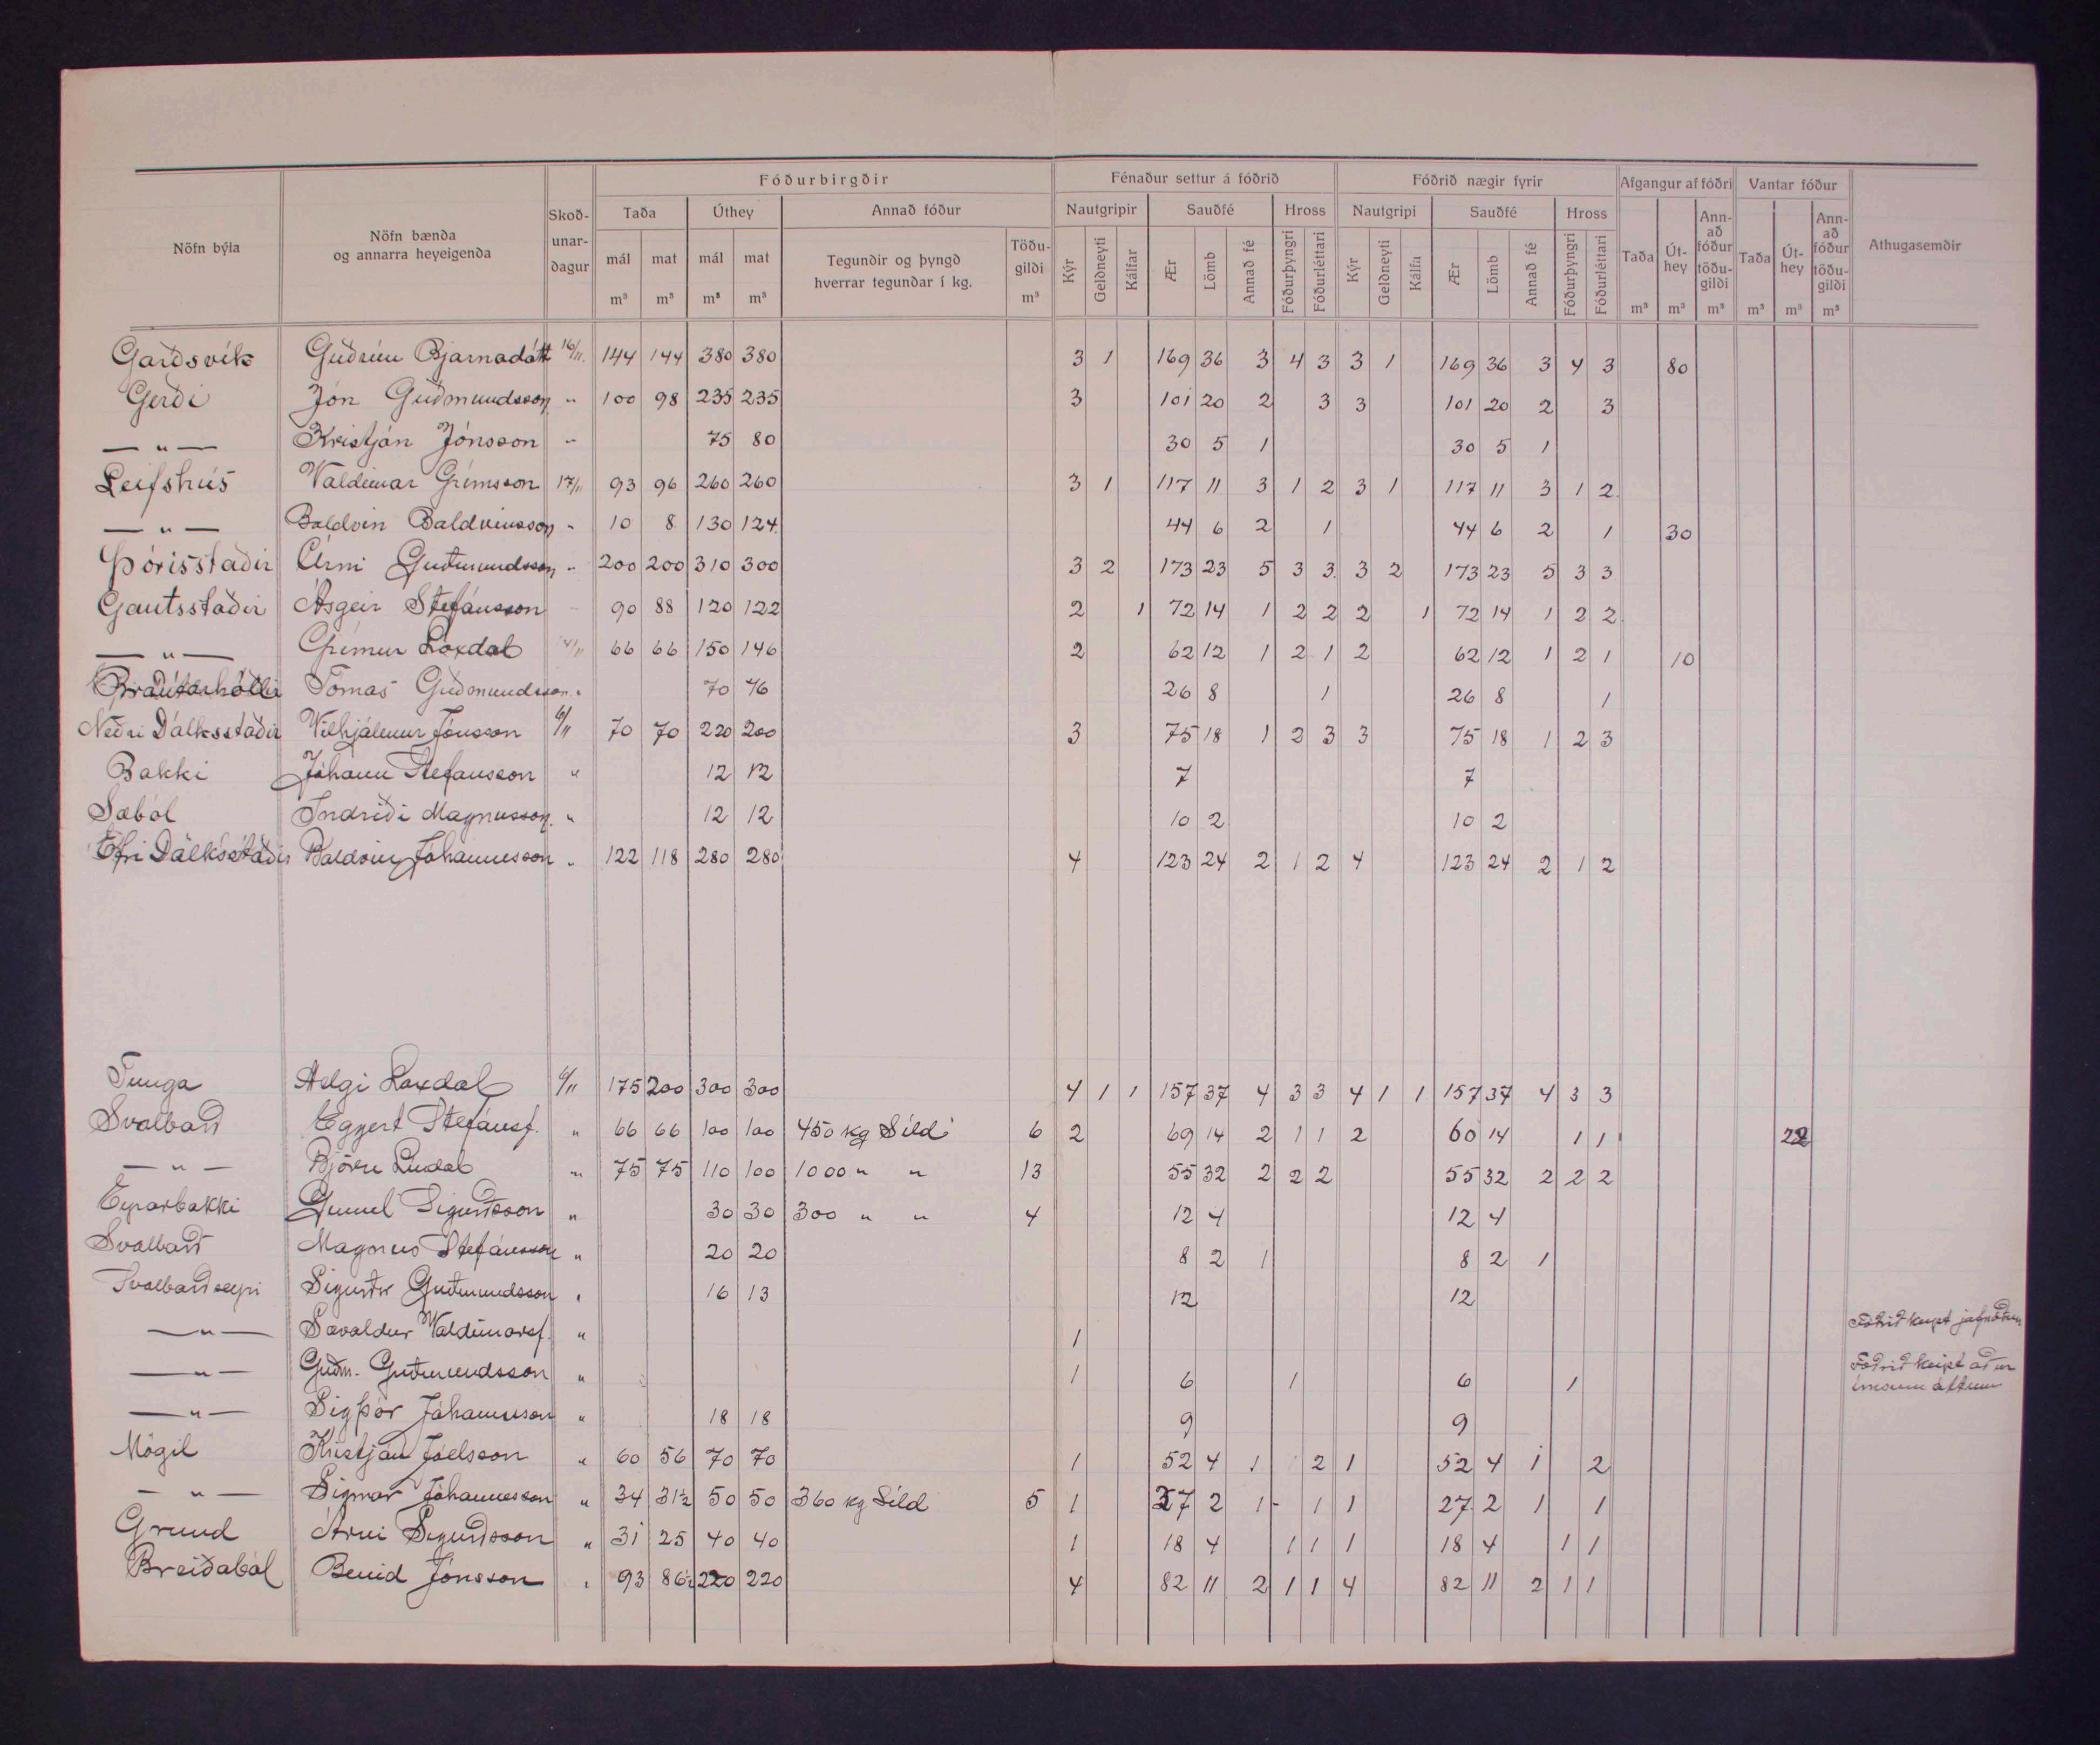 Fóðurbirgðir Fénaður settur á fóðrið Fóðrið nægir fyrir Afgangur af fóðri Vantar fóður
Nöfn býla Nöfn bænda og annarra heyeigenda Skoð-unar-dagur Taða Úthey Annað fóður Nautgripir Sauðfé Hross Nautgripi Sauðfé Hross Taða Út-hey Ann-að fóður töðu-gildi Taða Út-hey Ann-að fóður töðu-gildi Athugasemdir
mál mat mál mat Tegundir og þyngd hverrar tegundar í kg. Töðu-gildi Kýr Geldneyti Kálfar Ær Lömb Annað fé Fóðurþyngri Fóðurléttari Kýr Geldneyti Kálfa Ær Lömb Annað fé Fóðurþyngri Fóðurléttari
m³ m³ m³ m³ m³ m³ m³ m³ m³ m³ m³
Garðsvík Guðrún Bjarnadótt 16/11. 144 144 380 380 3 1 169 36 3 4 3 3 1 169 36 3 4 3 80
Gerði Jón Guðmundsson " 100 98 235 235 3 101 20 2 3 3 101 20 2 3
— " — Kristján Jónsson " 75 80 30 5 1 30 5 1
Leifshús Valdimar Grímsson 17/11 93 96 260 260 3 1 117 11 3 1 2 3 1 117 11 3 1 2
— " — Baldvin Baldvinsson " 10 8 130 124 44 6 2 1 44 6 2 1 30
Þórisstaðir Árni Guðmundsson " 200 200 310 300 3 2 173 23 5 3 3 3 2 173 23 5 3 3
Gautsstaðir Ásgeir Stefánsson " 90 88 120 122 2 1 72 14 1 2 2 2 1 72 14 1 2 2
— " — Grímur Laxdal 66 66 150 146 2 62 12 1 2 1 2 62 12 1 2 1 10
Tómas Guðmundsson " 70 76 26 8 1 26 8 1
Neðri Dálksstaðir Vilhjálmur Jónsson 6/11 70 70 220 200 3 75 18 1 2 3 3 75 18 1 2 3
Bakki Jóhann Stefansson " 12 12 7 7
Sæból Indriði Magnusson " 12 12 10 2 10 2
Efri Dálksstaðir Baldvin Jóhannesson " 122 118 280 280 4 123 24 2 1 2 4 123 24 2 1 2
Tunga Helgi Laxdal 6/11 175 200 300 300 4 1 1 157 37 4 3 3 4 1 1 157 37 4 3 3
Svalbarð Eggert Stefánsf. " 66 66 100 100 450 kg Síld 6 2 69 14 2 1 1 2 60 14 1 1 22
— " — Björn Líndal " 75 75 110 100 1000 " " 13 55 32 2 2 2 55 32 2 2 2
Eyrarbakki Sigurðsson " 30 30 300 " " 4 12 4 12 4
Svalbarð Magnus Stefánsson " 20 20 8 2 1 8 2 1
Svalbarðseyri Sigurðr Guðmundsson " 16 13 12 12
— " — Sævaldur Valdimarsf. " 1 Fóðrið keypt jafnóðum
— " — Guðm. Guðmundsson " 1 6 1 6 1 Fóðrið keypt að úr
ímsum áttum
— " — Sigþór Jóhannsson " 18 18 9 9
Mógil Kristján Jóelsson " 60 56 70 70 1 52 4 1 2 1 52 4 1 2
— " — Sigmar Jóhannesson " 34 31½ 50 50 360 kg Síld 5 1 27 2 1 - 1 1 27 2 1 1
Grund Árni Sigurðsson " 31 25 40 40 1 18 4 1 1 1 18 4 1 1
Breiðaból Benid Jónsson " 93 86½ 220 220 4 82 11 2 1 1 4 82 11 2 1 1